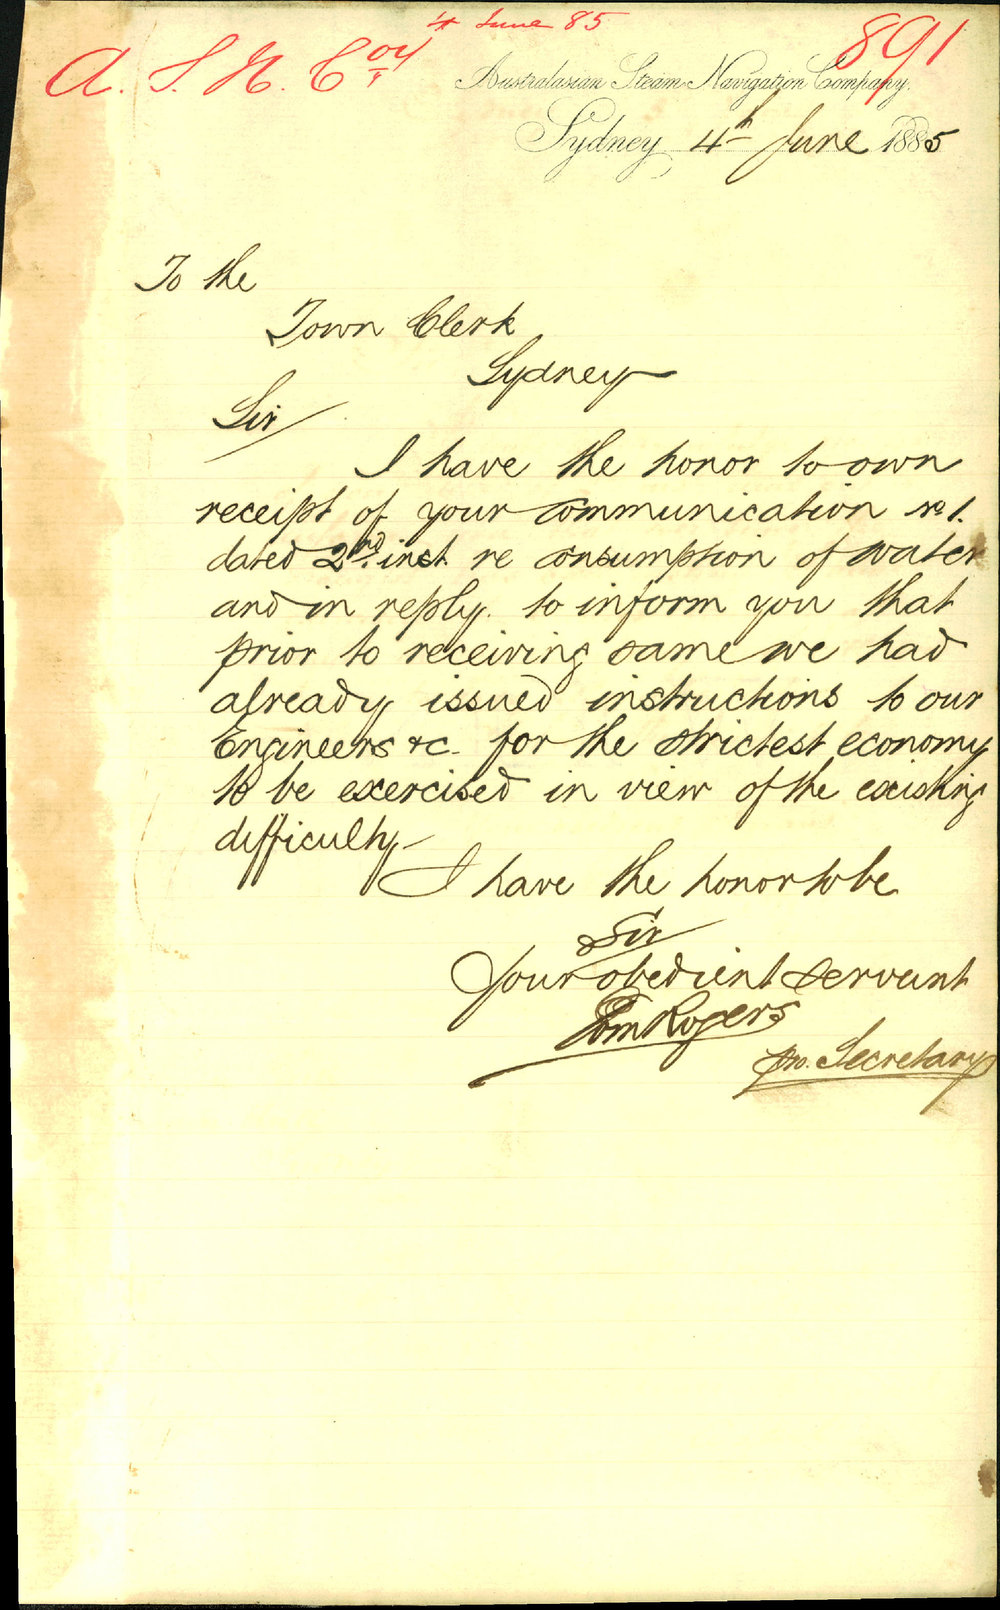 4 June 85
891
A. S. N. Coy
Australasian Steam Navigation Company.
Sydney 4th June 1885
To the
Town Clerk
Sydney
Sir
I have the honor to own
receipt of your communication No 1.
dated 2nd. inst. re consumption of water
and in reply. to inform you that
prior to receiving same we had
already issued instructions to our
Engineers &c. for the strictest economy
to be exercised in view of the existing
difficulty
I have the honor to be
Sir
Your obedient servant
Tom Rogers
pro. Secretary